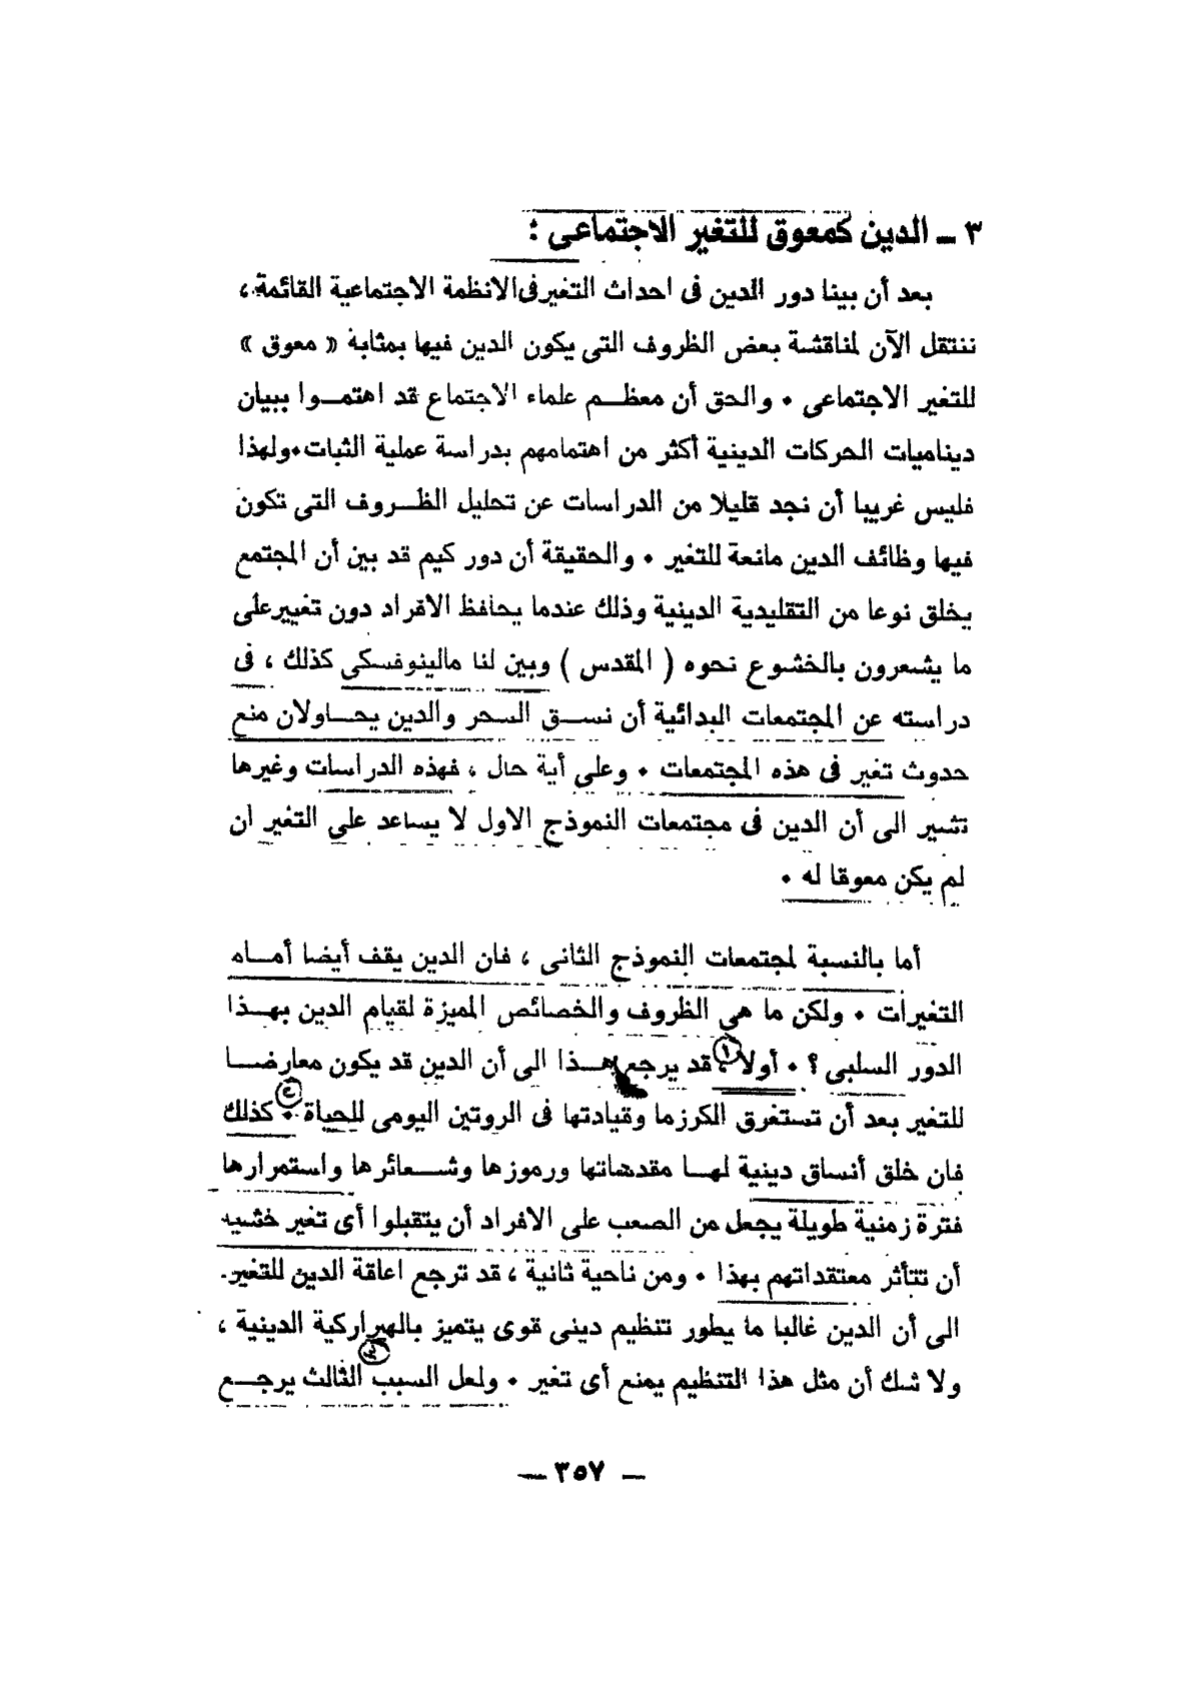 ٣ ـ الدين كمعوق للتغير الاجتماعى :
بعد أن بينا دور الدين فى احداث التغير فى الانظمة الاجتماعية القائمة ،
ننتقل الآن لمناقشة بعض الظروف التى يكون الدين فيها بمثابة « معوق »
للتغير الاجتماعى ٠ والحق أن معظـم علماء الاجتماع قد اهتمـوا ببيان
ديناميات الحركات الدينية أكثر من اهتمامهم بدراسة عملية الثبات٠ولهذا
فليس غريبا أن نجد قليلا من الدراسات عن تحليل الظـروف التى تكون
فيها وظائف الدين مانعة للتغير ٠ والحقيقة أن دور كيم قد بين أن المجتمع
يخلق نوعا من التقليدية الدينية وذلك عندما يحافظ الافراد دون تغيير على
ما يشعرون بالخشوع نحوه ( المقدس ) وبين لنا مالينوفسكى كذلك ، فى
دراسته عن المجتمعات البدائية أن نسـق السحر والدين يحـاولان منع
حدوث تغير فى هذه المجتمعات ٠ وعلى أية حال ، فهذه الدراسات وغيرها
تشير الى أن الدين فى مجتمعات النموذج الاول لا يساعد على التغير ان
لم يكن معوقا له ٠
أما بالنسبة لمجتمعات النموذج الثانى ، فان الدين يقف أيضا أمـام
التغيرات ٠ ولكن ما هى الظروف والخصائص المميزة لقيام الدين بهـذا
الدور السلبى ؟ ٠ أولا ، قد يرجع هـذا الى أن الدين قد يكون معارضـا
للتغير بعد أن تستغرق الكرزما وقيادتها فى الروتين اليومى للحياة ٠ كذلك
فان خلق أنساق دينية لهـا مقدساتها ورموزها وشـعائرها واستمرارها
فترة زمنية طويلة يجعل من الصعب على الافراد أن يتقبلوا أى تغير خشية
أن تتأثر معتقداتهم بهذا ٠ ومن ناحية ثانية ، قد ترجع اعاقة الدين للتغير
الى أن الدين غالبا ما يطور تنظيم دينى قوى يتميز بالهيراركية الدينية ،
ولا شك أن مثل هذا التنظيم يمنع أى تغير ٠ ولعل السبب الثالث يرجـع
— ٣٥٧ —